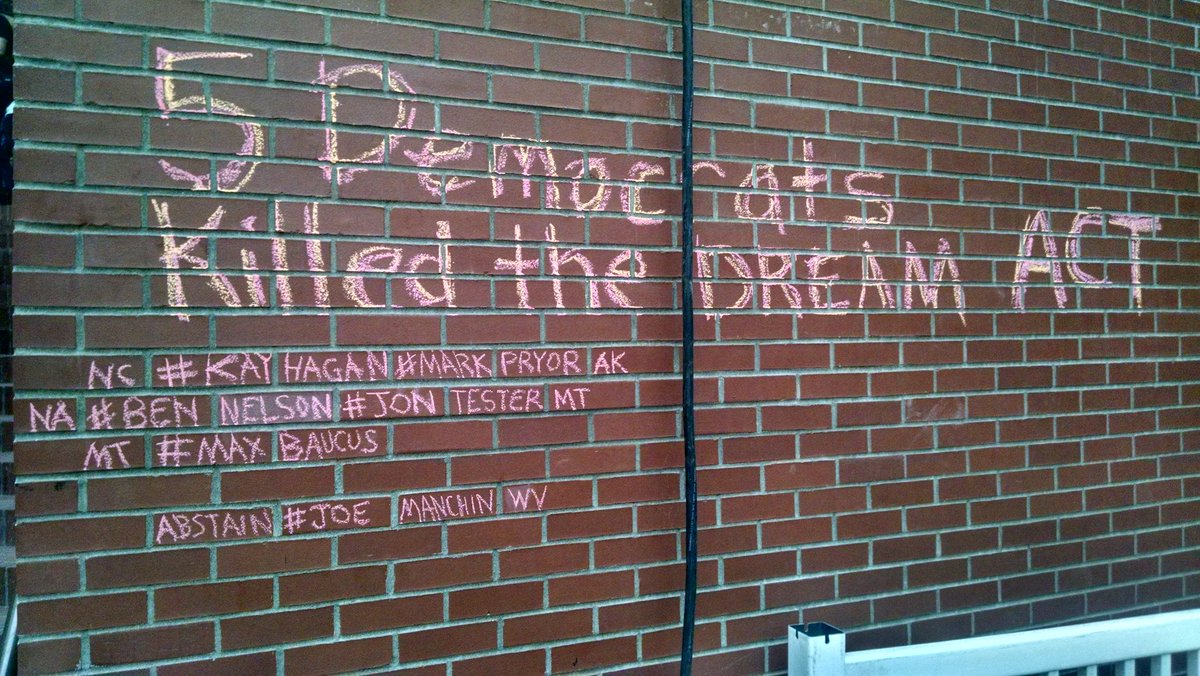 5 Democrats
Killed the DREAM ACT
NC #KAY HAGAN #MARK PRYOR AK
NA #BEN NELSON #JON TESTER MT
MT #MAX BAUCUS
ABSTAIN #JOE MANCHIN WV